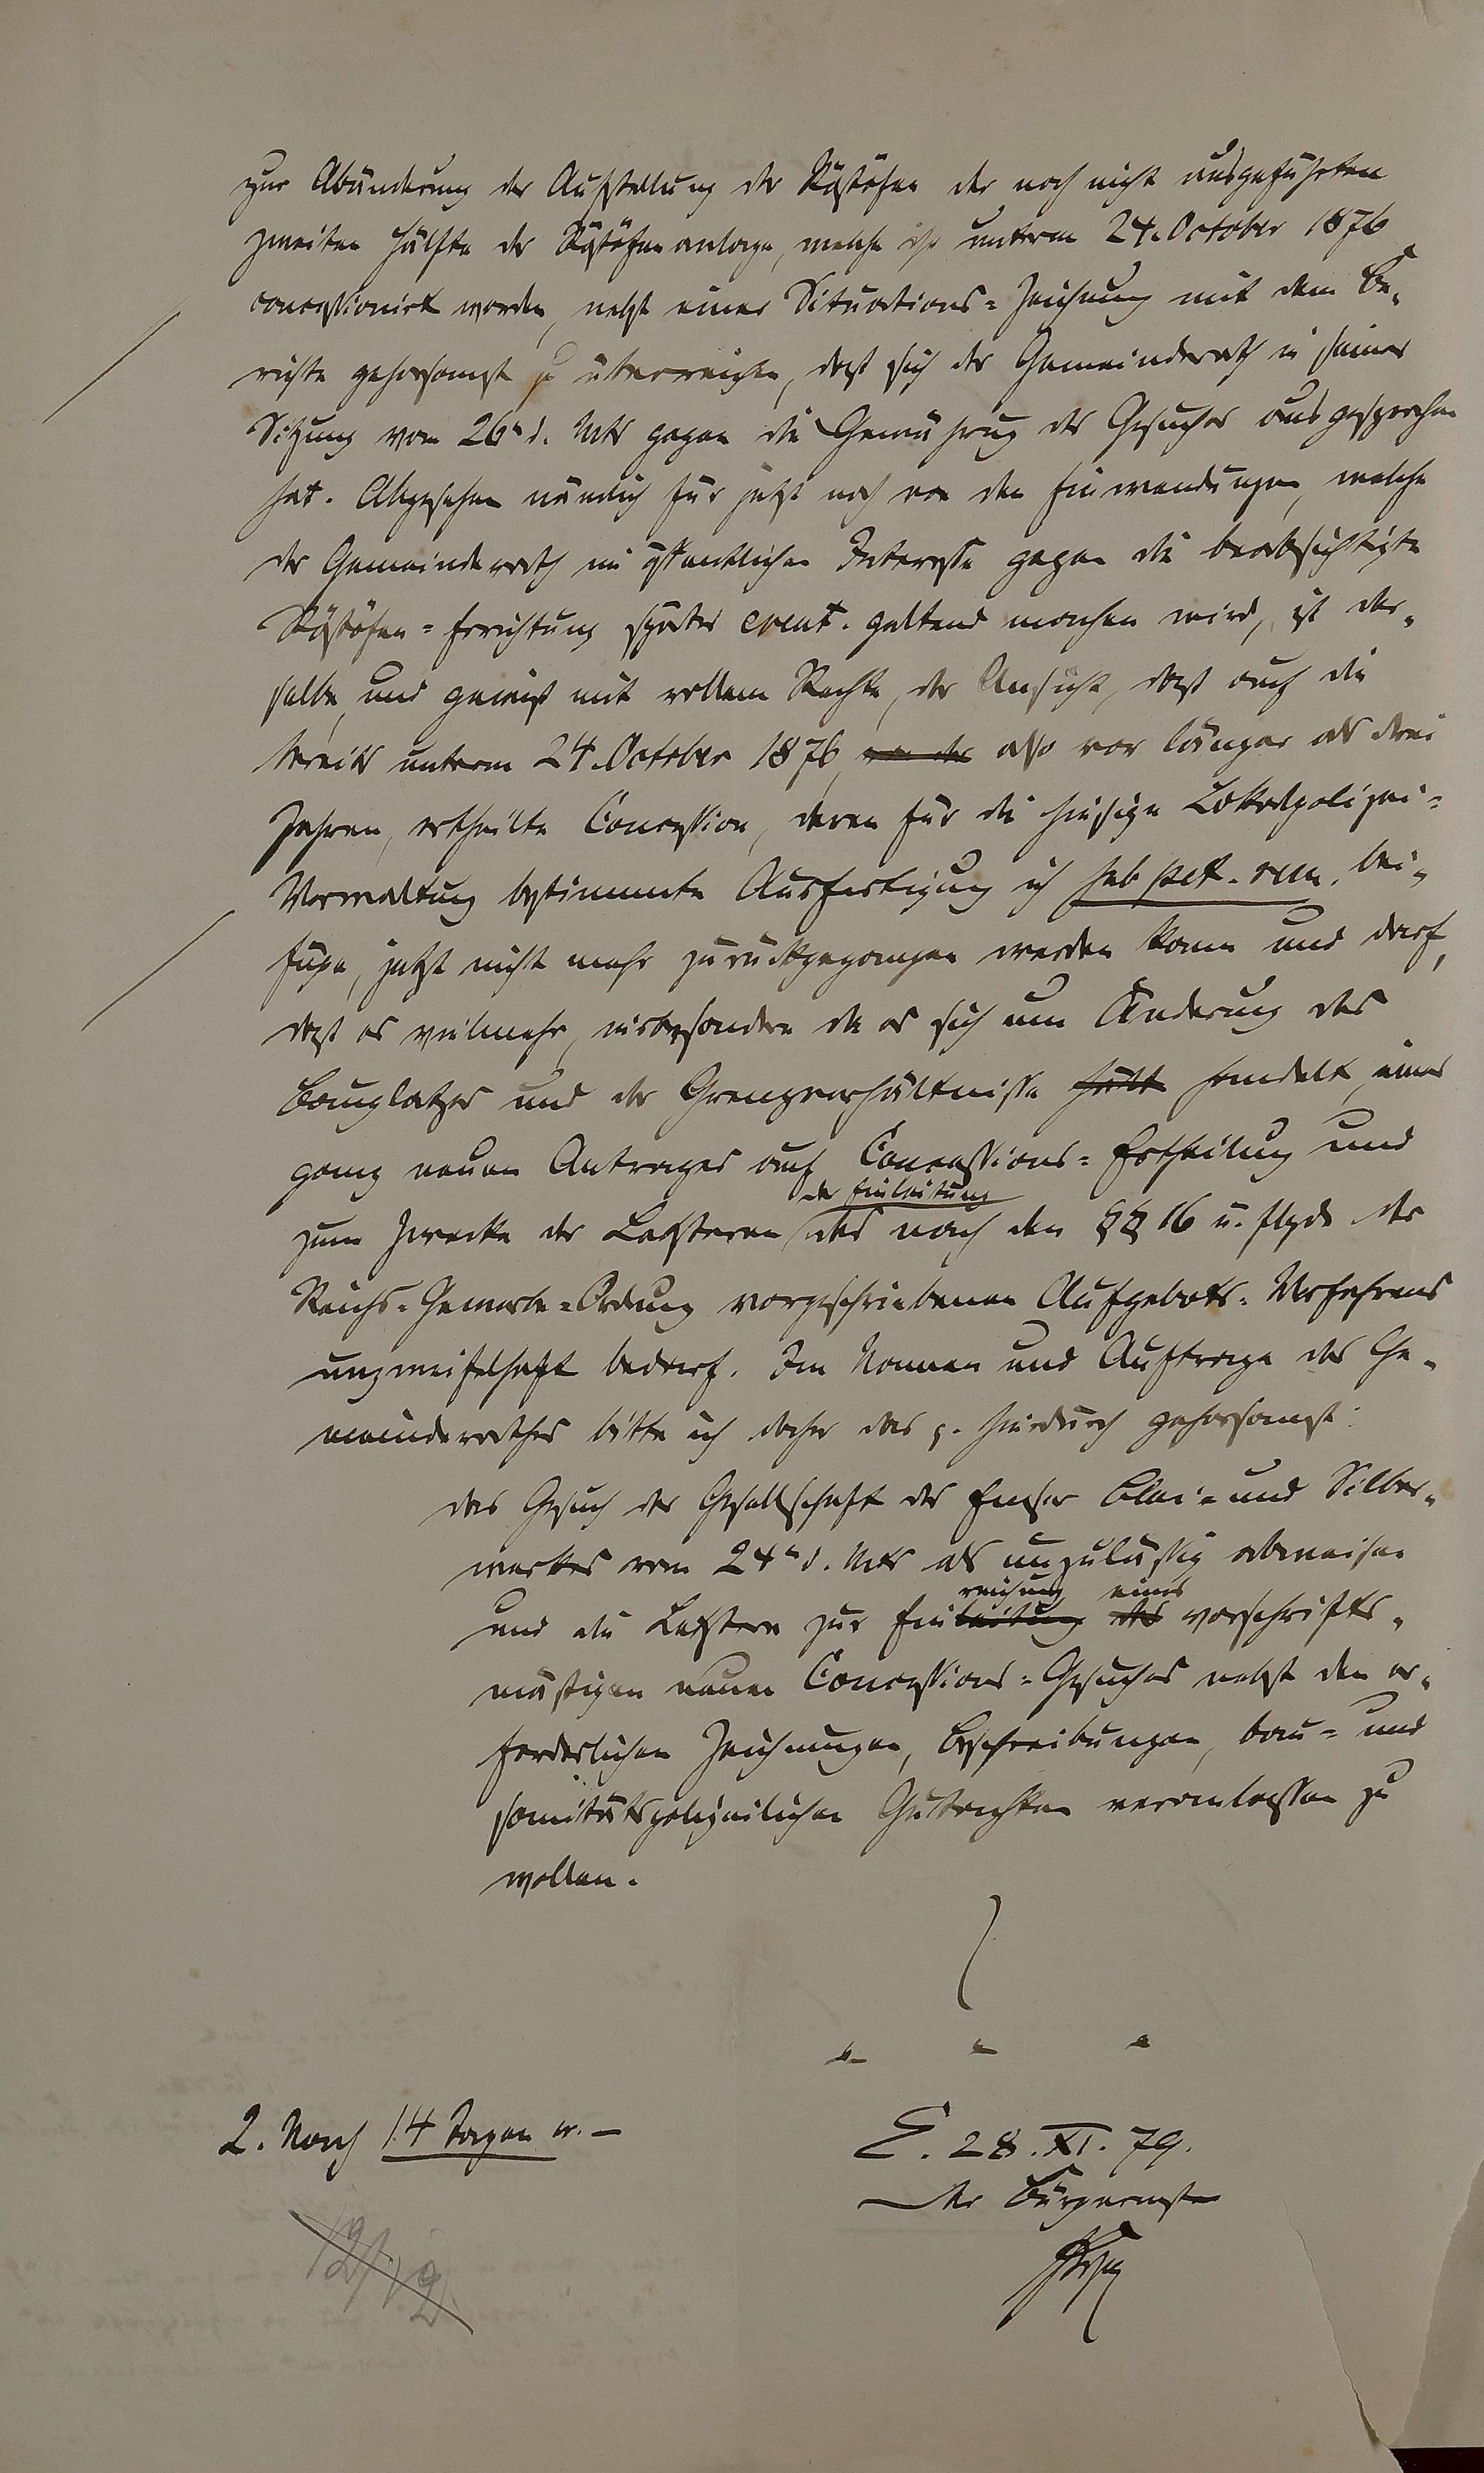 zur Abänderung der Aufstellung der Röstöfen der noch nicht ausgeführten
zweiten Hälfte der Röstöfenanlage, welche ihr unterm 24. October 1876
concessionirt worden, nebst einer Situations-Zeichnung mit dem Be-
richte gehorsamst zu überreichen, daß sich der Gemeinderath in seiner
Sitzung vom 26n d. Mts gegen die Gewährung des Gesuches ausgesprochen
hat. Abgesehen nämlich für jetzt noch von den Einwendungen, welche
der Gemeinderath im öffentlichen Interesse gegen die beabsichtigte
Röstöfen-Errichtung später event. geltend machen wird, ist der-
selbe, und gewiß mit vollem Rechte, der Ansicht, daß auf die
bereits unterm 24. October 1876, von der also vor länger als drei
Jahren, ertheilte Concession, deren für die hiesige Lokalpolizei-
Verwaltung bestimmte Ausfertigung ich sub pet. rem. bei-
füge, jetzt nicht mehr zurückgegangen werden kann und darf,
daß es vielmehr, insbesondere da es sich um Änderung des
Bauplatzes und der Grenzverhältnisse hält handelt, eines
ganz neuen Antrages auf Concessions-Ertheilung und
der Einleitung
zum Zwecke der Letzteren des nach den §§ 16 u. flgde der
Reichs-Gewerbe-Ordnung vorgeschriebenen Aufgebots-Verfahrens
unzweifelhaft bedarf. Im Namen und Auftrage des Ge-
meinderathes bitte ich daher das p. hierdurch gehorsamst:
das Gesuch der Gesellschaft des Emser Blei- und Silber-
werkes vom 24n d. Mts als unzulässig abweisen
reichung eines
und die Letztere zur Einleitung des vorschrifts-
mäßigen neuen Concessions-Gesuches nebst den er-
forderlichen Zeichnungen, Beschreibungen, bau- und
sanitätspolizeilichen Gutachten veranlassen zu
wollen.
2. Nach 14 Tagen w.
E. 28. XI. 79.
Der Bürgermster
12/12.